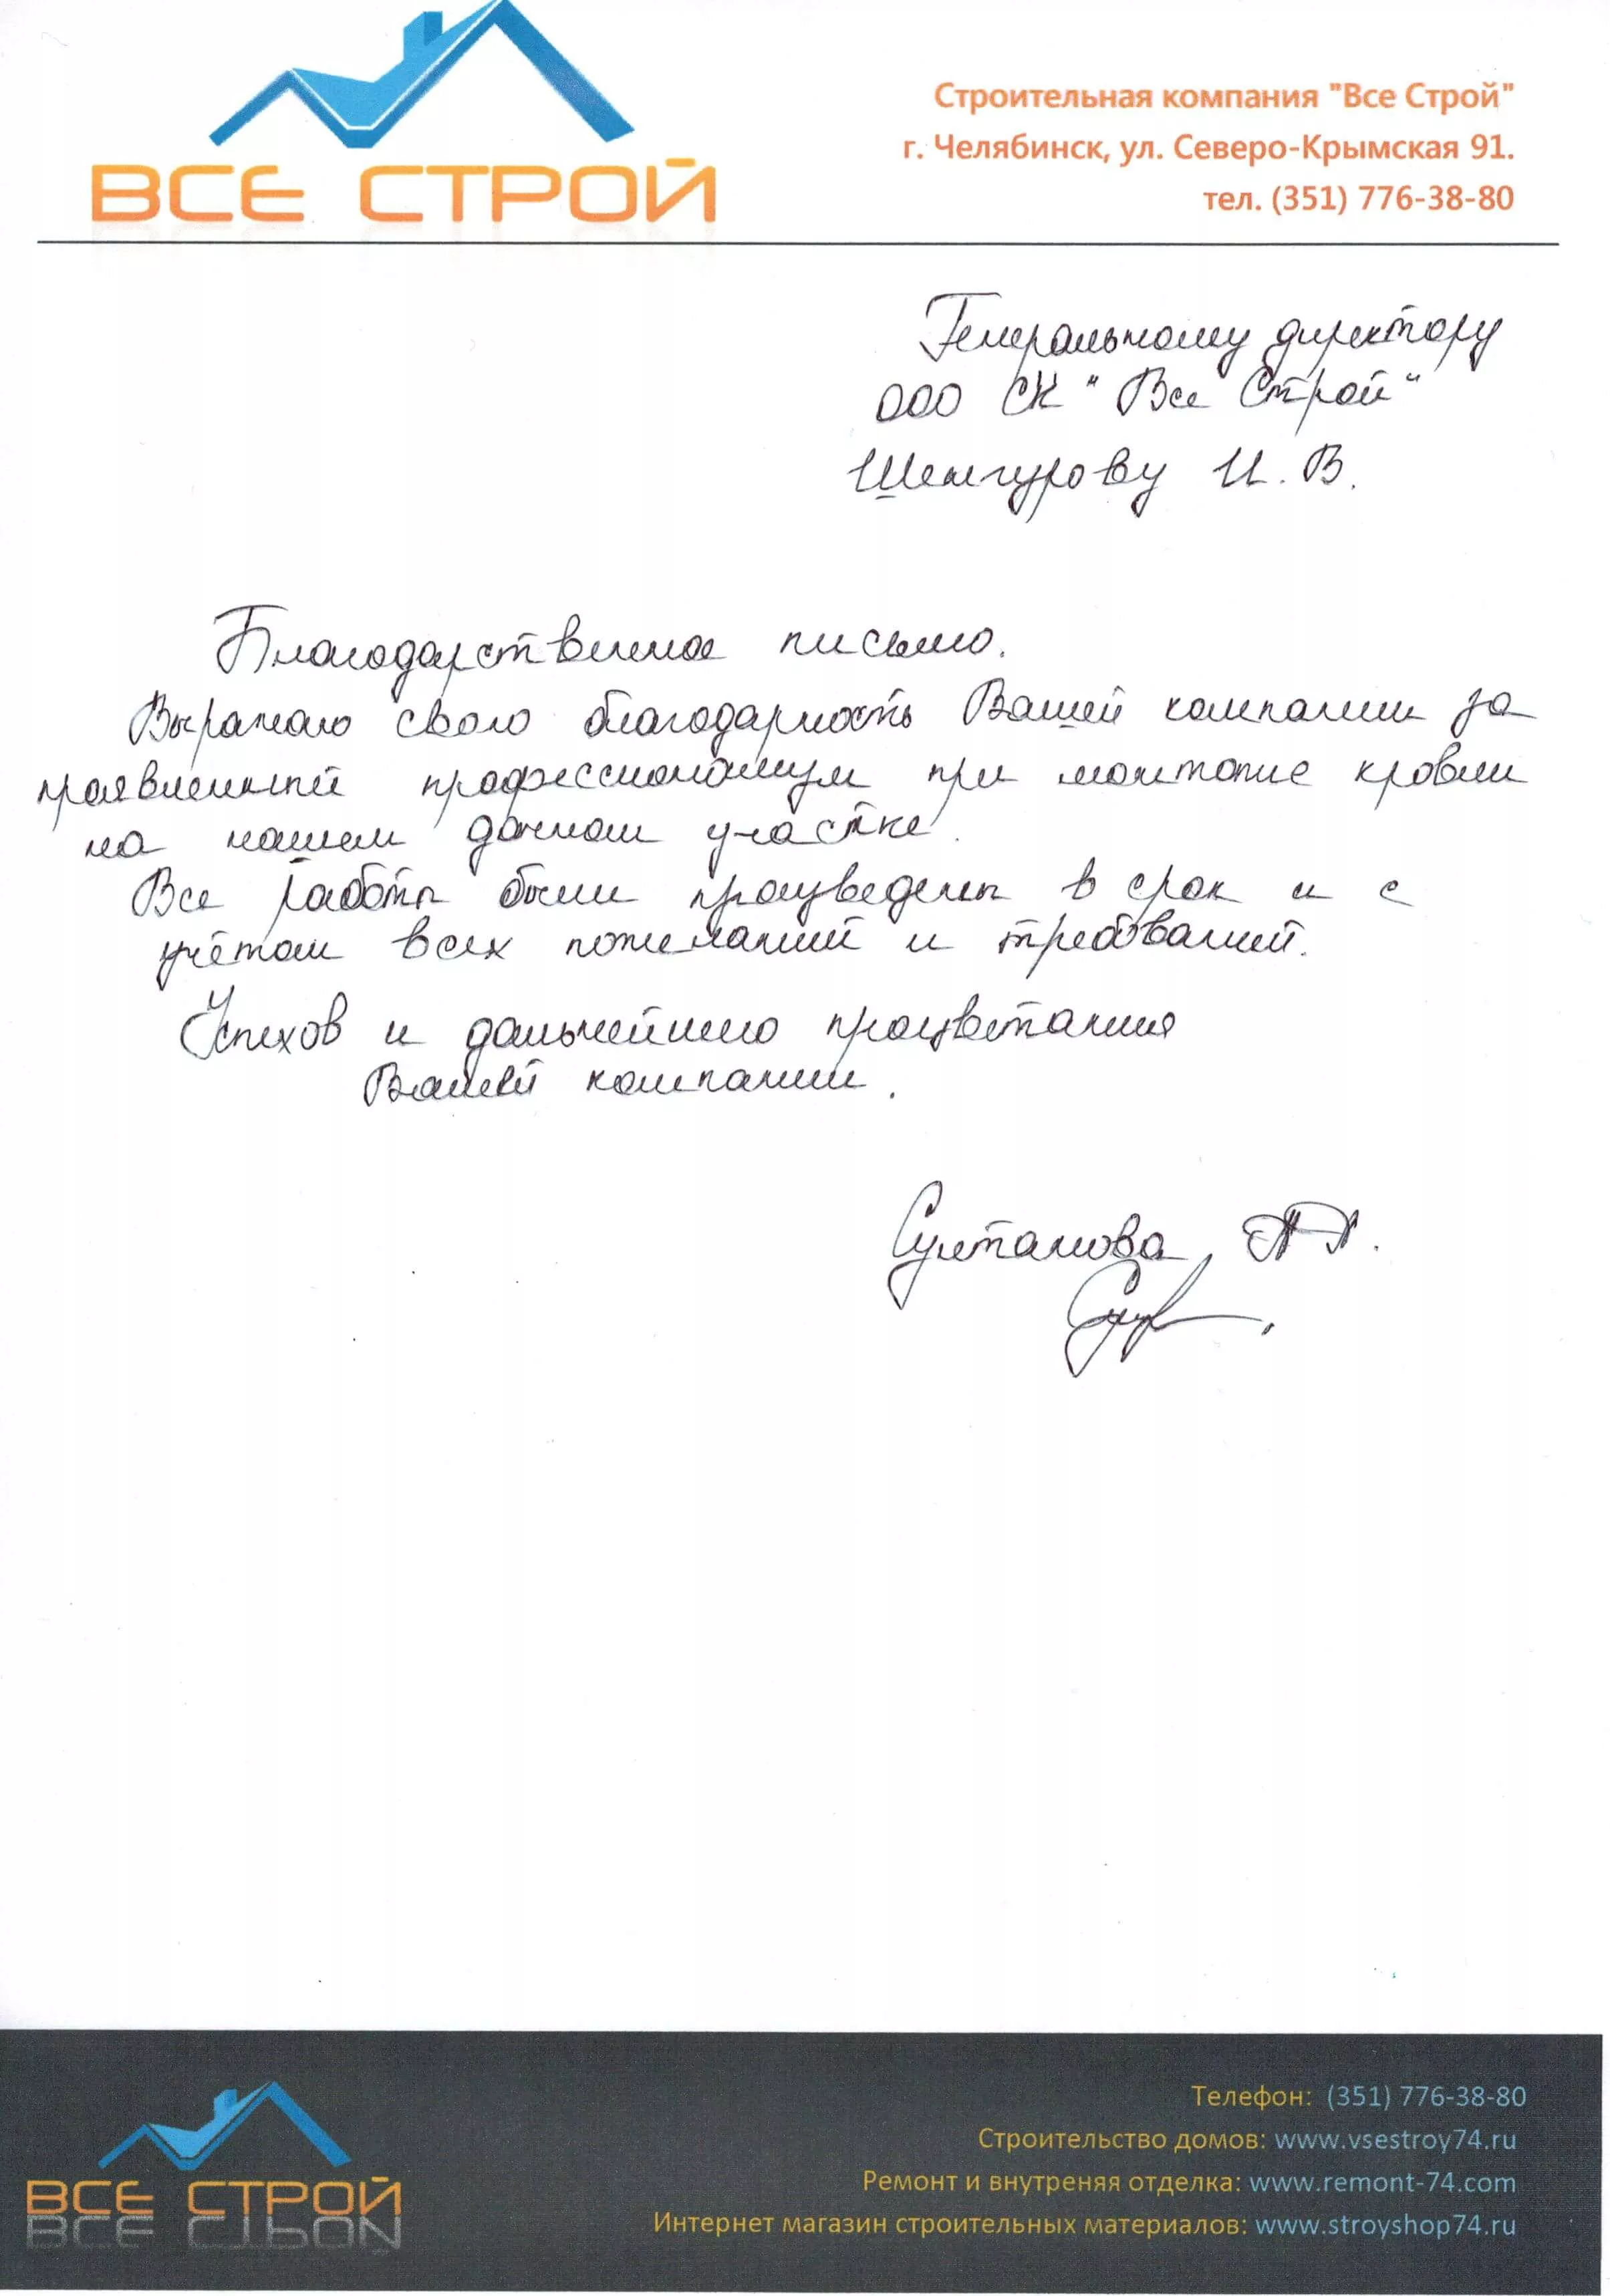 ВСЕ СТРОЙ
Строительная компания "Все Строй"
г. Челябинск, ул. Северо-Крымская 91.
тел. (351) 776-38-80
Генеральному директору
ООО СК "Все Строй"
Шенгурову И. В.
Благодарственное письмо.
Выражаю свою благодарность Вашей компании за
проявленный профессионализм при монтаже кровли
на нашем дачном участке.
Все работы были произведены в срок и с
учётом всех пожеланий и требований.
Успехов и дальнейшего процветания
Вашей компании.
Султанова А.А.
ВСЕ СТРОЙ
Телефон: (351) 776-38-80
Строительство домов: www.vsestroy74.ru
Ремонт и внутреняя отделка: www.remont-74.com
Интернет магазин строительных материалов: www.stroyshop74.ru